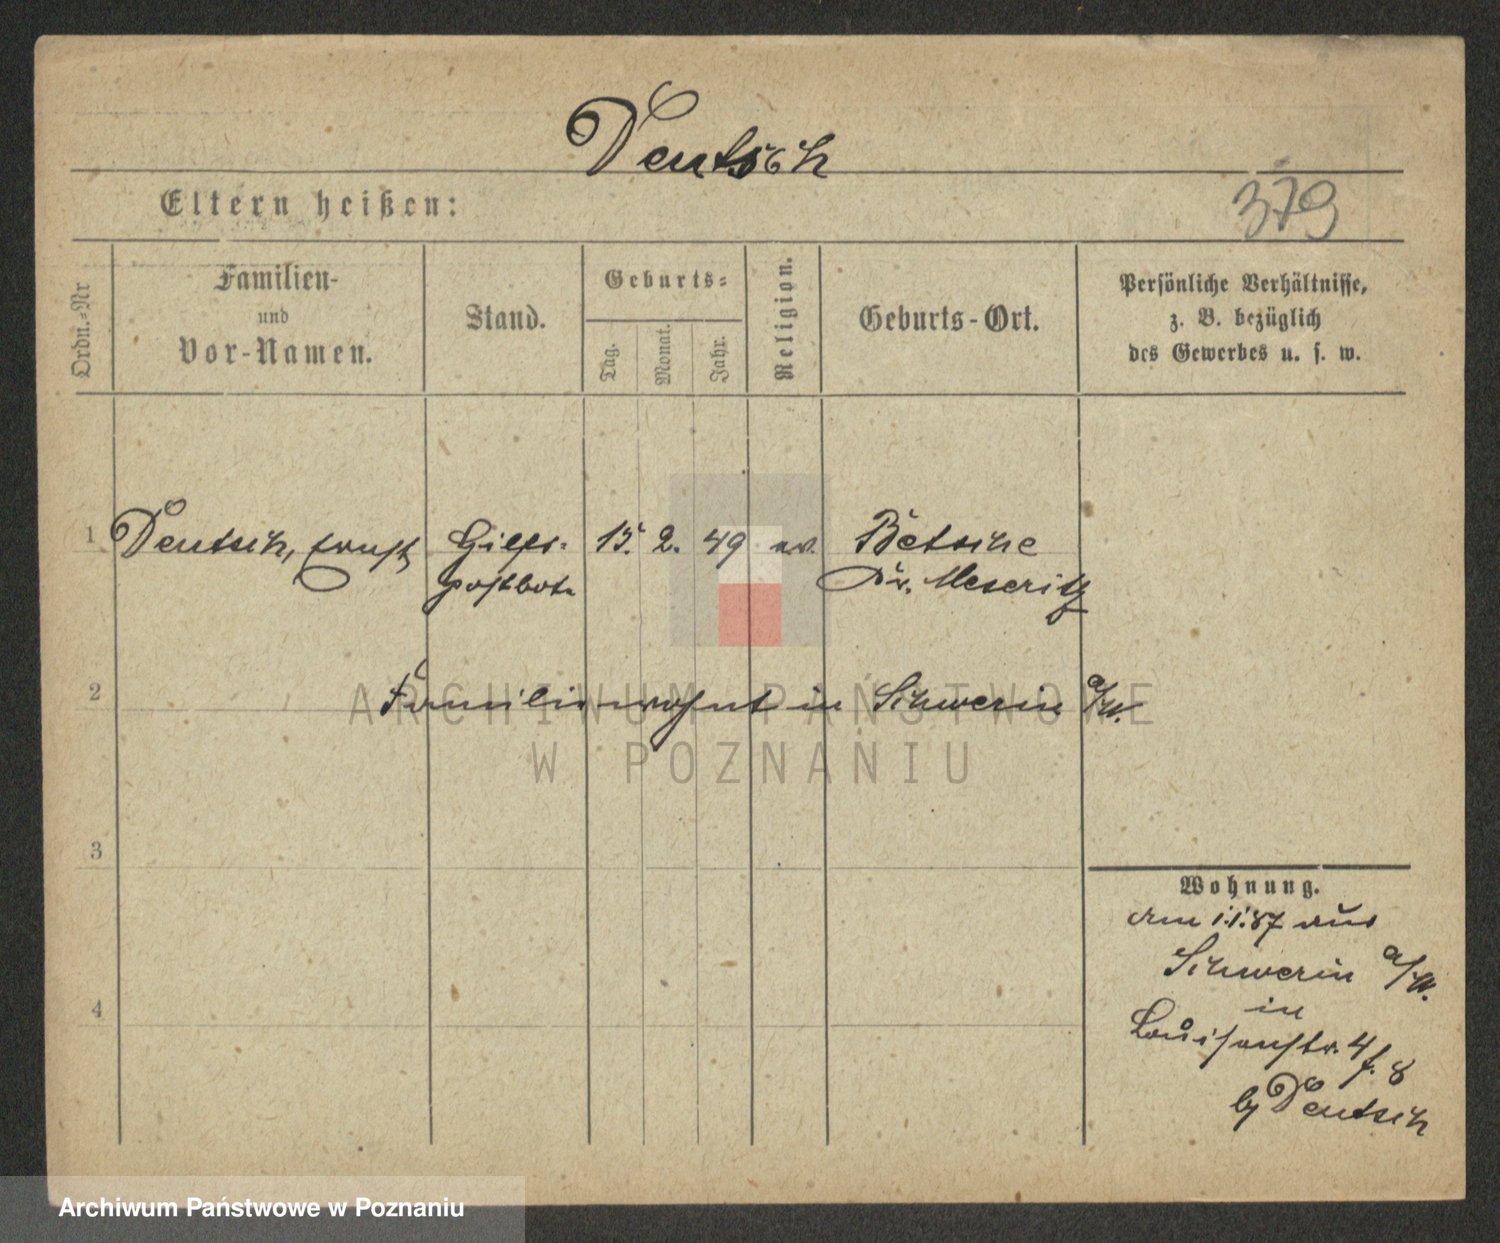 Deutsch
Eltern heißen:
379
Ordn.-Nr
Familien-
und
Vor-Namen.
Stand.
Geburts-
Tag.
Monat.
Jahr.
Religion.
Geburts-Ort.
Persönliche Verhältnisse,
z. B. bezüglich
des Gewerbes u. s. w.
1 Deutsch, Ernst Hilfs- 15. 2. 49 ev. Betsche
postbote Kr. Meseritz
2 Familie wohnt in Schwerin a/W.
ARCHIWUM PAŃSTWOWE
W POZNANIU
3
Wohnung.
am 1.1.87 aus
Schwerin a/W.
in
4 Louisenstr. 4
by Deutsch
Archiwum Państwowe w Poznaniu